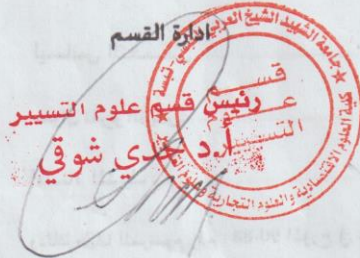 ادارة القسم
جامعة الشهيد الشيخ العربي التبسي - تبسة
كلية العلوم الاقتصادية والعلوم التجارية وعلوم التسيير
قسم
علوم
التسيير
رئيس قسم علوم التسيير
أ.د جدي شوفي